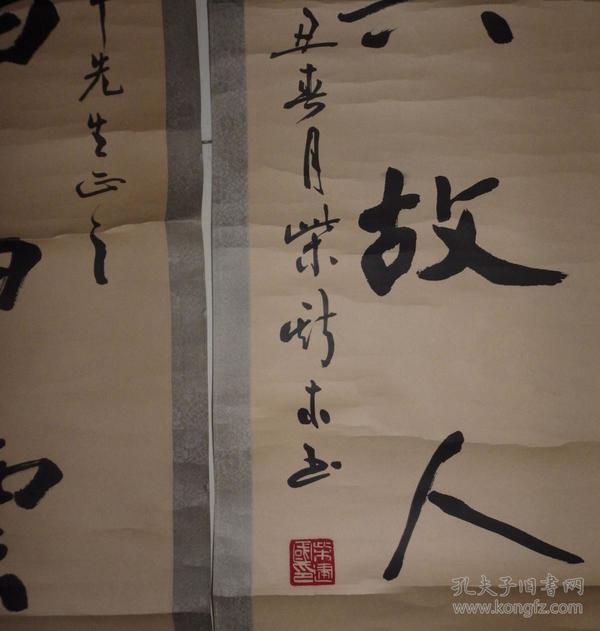 故人
丑春月柴木书
柴建国印
先生正之
孔夫子旧书网
www.kongfz.com